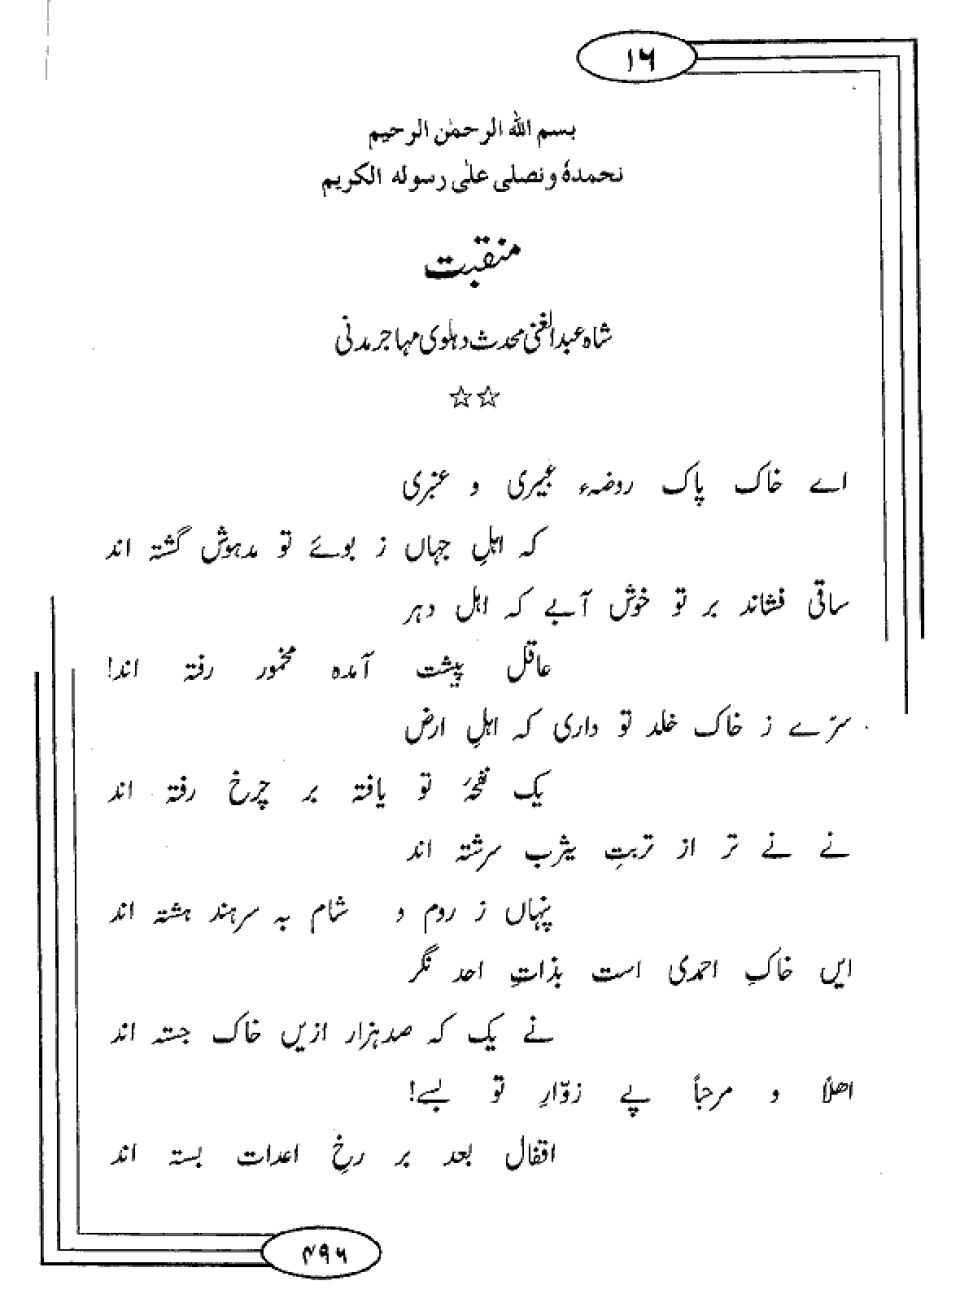 ۱۶
بسم الله الرحمٰن الرحیم
نحمدہٗ ونصلی علیٰ رسوله الکریم
منقبت
شاہ عبدالغنی محدث دہلوی مہاجر مدنی
☆☆
اے خاک پاک روضۂ عبیری و عنبری
کہ اہلِ جہاں ز بوئے تو مدہوش گشتہ اند
ساقی فشاند بر تو خوش آبے کہ اہل دہر
عاقل پیشت آمدہ مخمور رفتہ اند!
سرّے ز خاک خلد تو داری کہ اہلِ ارض
یک نفحۂ تو یافتہ بر چرخ رفتہ اند
نے نے تر از تربتِ یثرب سرشتہ اند
پنہاں ز روم و شام بہ سرہند ہشتہ اند
ایں خاکِ احمدی است بذاتِ احد نگر
نے یک کہ صدہزار ازیں خاک جستہ اند
اھلاً و مرحباً پے زوّارِ تو بسے!
اقفال بعد بر رخِ اعدات بستہ اند
۴۹۶